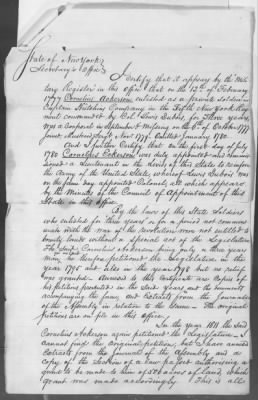 State of New York
Secretary's Office
I Certify that it appears by the Mili-
tary Register in this office that on the 13th of February
1777 Cornelius Ackerson enlisted as a private soldier in
Captain Hutchins Company in the Fifth New York Regi-
ment commanded by Col. Lewis Dubois for Three years,
was a Corporal in September & Missing on the 6th of October 1777
joined Muster in 1779 & Enlisted January 1780.
And I further Certify that on the first day of
July 1780 Cornelius Ackerson was duly appointed and commis-
sioned a Lieutenant in the levies of this State to reinforce
the Army of the United States, whereof Lewis Dubois was
on the same day appointed Colonel, all which appears
by the Minutes of the Council of Appointment of this
State in this office.
By the laws of this State Soldiers
who enlisted for three years or for a period not commen-
surate with the War of the revolution were not entitled to
bounty lands without a special act of the Legislature.
The said Cornelius Ackerson being only a three years
man, he therefore petitioned the Legislature in the
year 1795 and also in the year 1798 but no relief
was granted. Annexed to this certificate are copies of
his petitions presented in the said years and the documents
accompanying the same and Extracts from the Journals
of the Assembly in relation to the Same. The original
petitions are on file in this office.
In the year 1811 the said
Cornelius Ackerson again petitioned the Legislature. I
cannot find the original petition, but I have annexed
Extracts from the Journal of the Assembly and a
copy of the Section of a law passed authorising a
grant to be made to him of 500 acres of land, which
grant was made accordingly. This is all